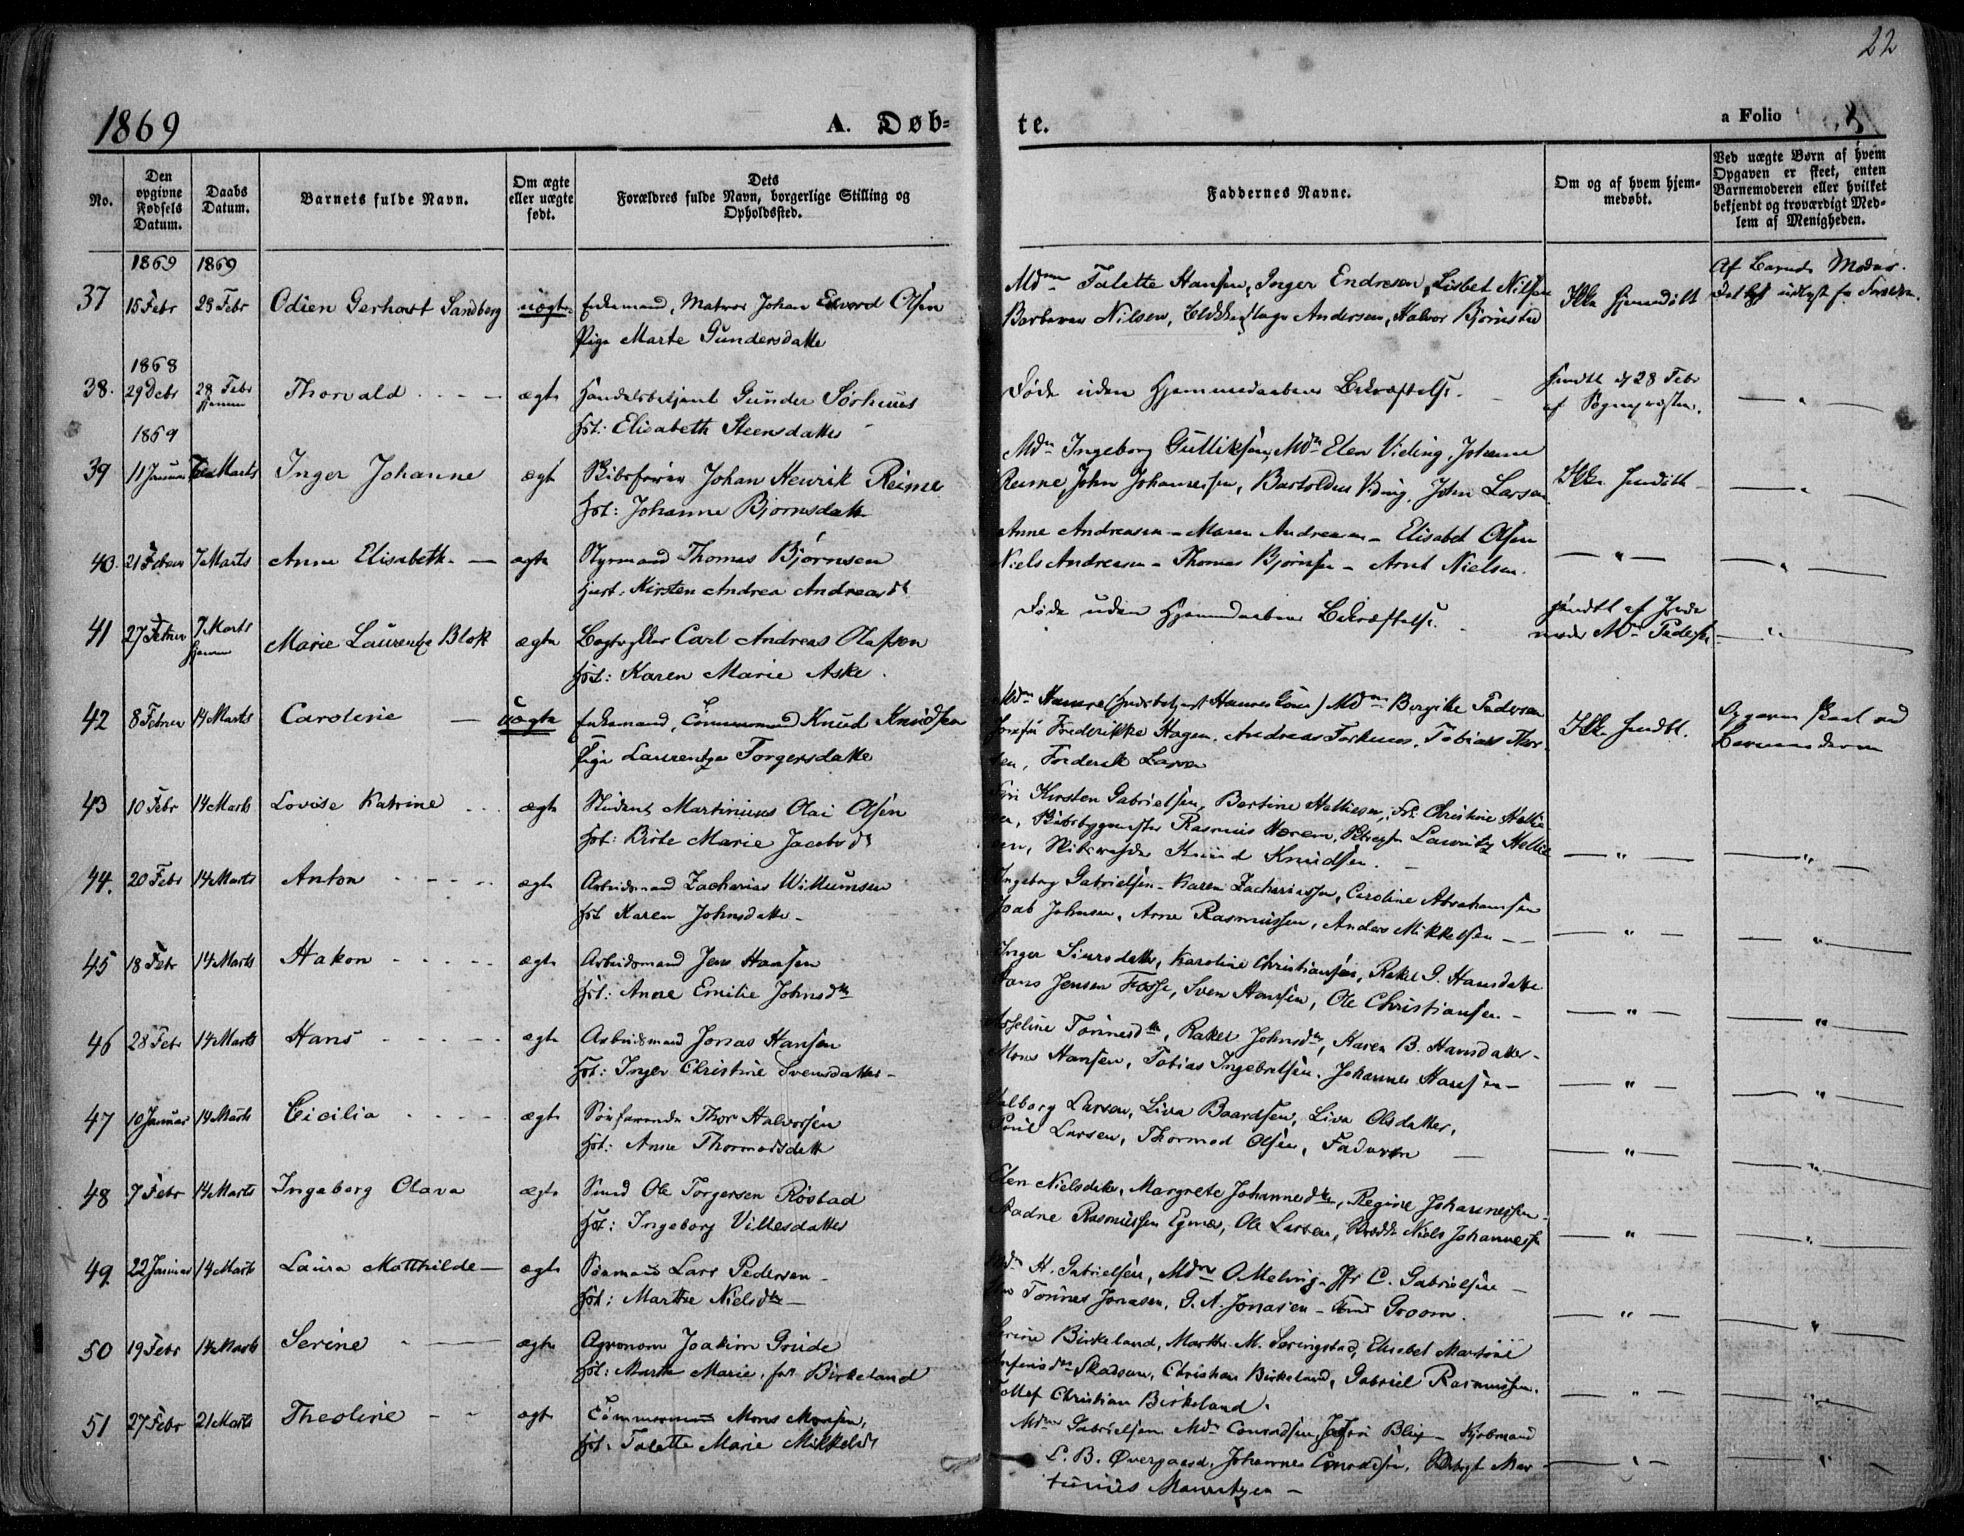 22
1869
A. Døb-
te.
a Folio
No.
Den opgivne Fødsels Datum.
Daabs Datum.
Barnets fulde Navn.
Om ægte eller uægte født.
Dets Forældres fulde Navn, borgerlige Stilling og Opholdssted.
Faddernes Navne.
Om og af hvem hjemmedøbt.
Ved uægte Børn af hvem Opgaven er skeet, enten Barnemoderen eller hvilket bekjendt og troværdigt Medlem af Menigheden.
1869 1869
37 15 Febr 28 Febr Odien Gerhart Sandberg uægte Enkemand, Matros Johan Edvard Olsen
Pige Marte Gundersdatte
Mdm Talette Hansen, Inger Endresen, Lisbet Nilsen
Nilsen, Andersen, Halvor Bjørnstad
Ikke Hjemdøbt
Af Barnets Moder.
1868
38. 29 Decbr 28 Febr hjemme Thorvald ægte Handelsbetjent Gunder Sørhuus
Hst: Elisabeth Steensdatter
Døde uden Hjemmedaabens Bekræftelse.
hjmdbt d 28 Febr
af Sognepresten.
1869
39 11 Januar Marts Inger Johanne ægte Johan Henrik Reime
Hst: Johanne Bjørnsdatt
Mdm Ingeborg Gulliksen, Mdm Elen Viding, Johanne
Reime, John Johannesen, Viding, John Larsen
Ikke hjmdbt
40. 21 Februar 7 Marts Anne Elisabeth ægte Styrmand Thomas Bjørnsen
Hust. Kirsten Andrea Andreasdt
Anne Andreasen - Maren Andreasen - Elisabet Olsen
Niels Andreasen - Thomas Bjørnsen - Arnt Nielsen.
41 27 Febuar 7 Marts hjemme Marie Laurentze Blok ægte Bogtrykker Carl Andreas Olafson
Hst: Karen Marie Aske.
Døde uden Hjemmedaabens Bekræftelse.
hjmdbt af Jorde
moder Mdm Pedersen
42 8 Februar 14 Marts Caroline uægte Enkemand, Tømmermand Knud Knudsen
Pige Laurentze Torgersdatte
Mdm Birgitte Pedersen
Frederikke Hagen, Andreas Torkius, Tobias Thor-
sen, Frederik Larsen
Ikke hjmdbt.
Opgaven skeet ved
Barnemoderen
43 10 Febr 14 Marts Lovise Katrine ægte Student Martinius Olai Olsen
Hst: Birte Marie Jacobsdt
Kirsten Gabrielsen, Bertine Helliesen, Frk Christine Hellie-
sen, Skibsbygmester Rasmus Næreim, Lauritz Hellie-
sen, Knud Knudsen.
44. 20 Febr 14 Marts Anton ægte Arbeidsmand Zacharias Willumsen
Hst Karen Johnsdatte
Ingeborg Gabrielsen - Karen Zachariassen, Caroline Abrahamsen
Johnsen, Arne Rasmussen, Anders Mikkelsen
45 18 Febr 14 Marts Hakon ægte Arbeidsmand Jens Hansen
Hst: Anne Emilie Johnsdtr
Inger Siursdatter, Karoline Christiansen, Rakel G. Hansdatte
Hans Jensen Fosse, Sven Hansen, Ole Christiansen
46 28 Febr 14 Marts Hans ægte Arbeidsmand Jonas Hansen
Hst: Inger Christine Svensdatter
Asseline Tønnesdtr, Rakel Johnsdtr, Karen B. Hansdatter
Mons Hansen, Tobias Ingebretsen, Johannes Hansen
47 10 Januar 14 Marts Cicilia ægte Søfarende Thor Halvorsen
Hst: Anne Thormodsdatt
Valborg Larsen, Liva Baardsen, Liva Olsdatter,
Poul Larsen, Thormod Olsen, Faderen
48 7 Febr 14 Marts Ingeborg Olava ægte Smed Ole Torgersen Røstad
Hst: Ingeborg Villesdatter
Elen Nielsdatter, Margrete Johannesdtr, Regine Johannessen
Aadne Rasmussen Egenæs, Ole Larsen, Niels Johannessen
49 22 Januar 14 Marts Laura Matthilde ægte Sømand Lars Pedersen
Hst: Marthe Nielsdtr
Mdm H. Gabrielsen, Mdm O Meling, Jfr C. Gabrielsen
Tønnes Jonasen, G. A. Jonasen - Groom.
50 19 Febr 14 Marts Serine ægte Agronom Joakim Grude
Hst: Marthe Marie, født Birkeland
Serine Birkeland, Marthe M. Sæveringstad, Elisabet Martine
Skadsem, Christian Birkeland, Gabriel Rasmussen.
Tollef Christian Birkeland.
51 27 Febr 21 Marts Theoline ægte Tømmermand Mons Monsen,
Hst: Talette Marie Mikkelsdt
Mdm Gabrielsen Mdm Conradsen, Blix - Kjøbmand
L. B. Øvergaard, Johannes Conradsen, Mar-
tinius Mauritzen